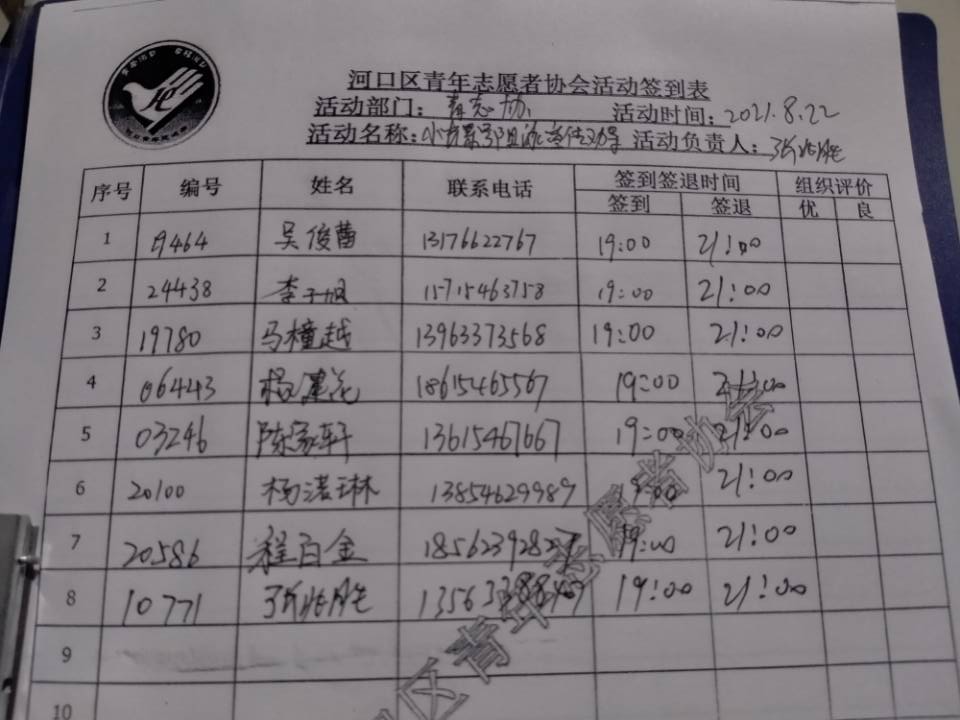 河口区青年志愿者协会活动签到表
活动部门：青志协 活动时间：2021.8.22
活动名称： 活动负责人：
序号 编号 姓名 联系电话 签到签退时间 组织评价
签到 签退 优 良
1 19464 吴俊苗 13176622767 19:00 21:00
2 24438 李子旭 15715463758 19:00 21:00
3 19780 马橦越 13963373568 19:00 21:00
4 06443 杨建花 18615465567 19:00 21:00
5 03246 陈家轩 13615467667 19:00 21:00
6 20100 杨诺琳 13854629989 19:00 21:00
7 20586 程百金 19:00 21:00
8 10771 19:00 21:00
9
10
区青年志愿者协会